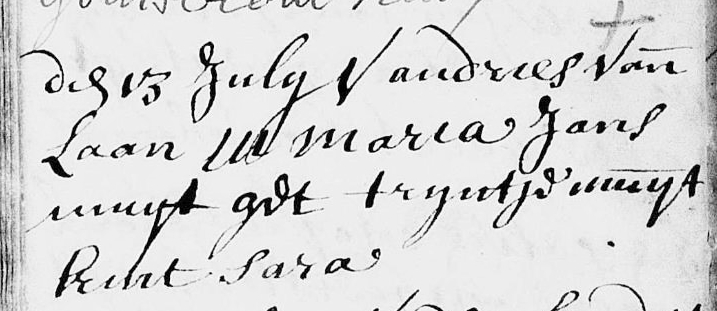 den 13 July V andries Van
Laan M maria Jans
muyt gdt tryntje muyt
kint Sara